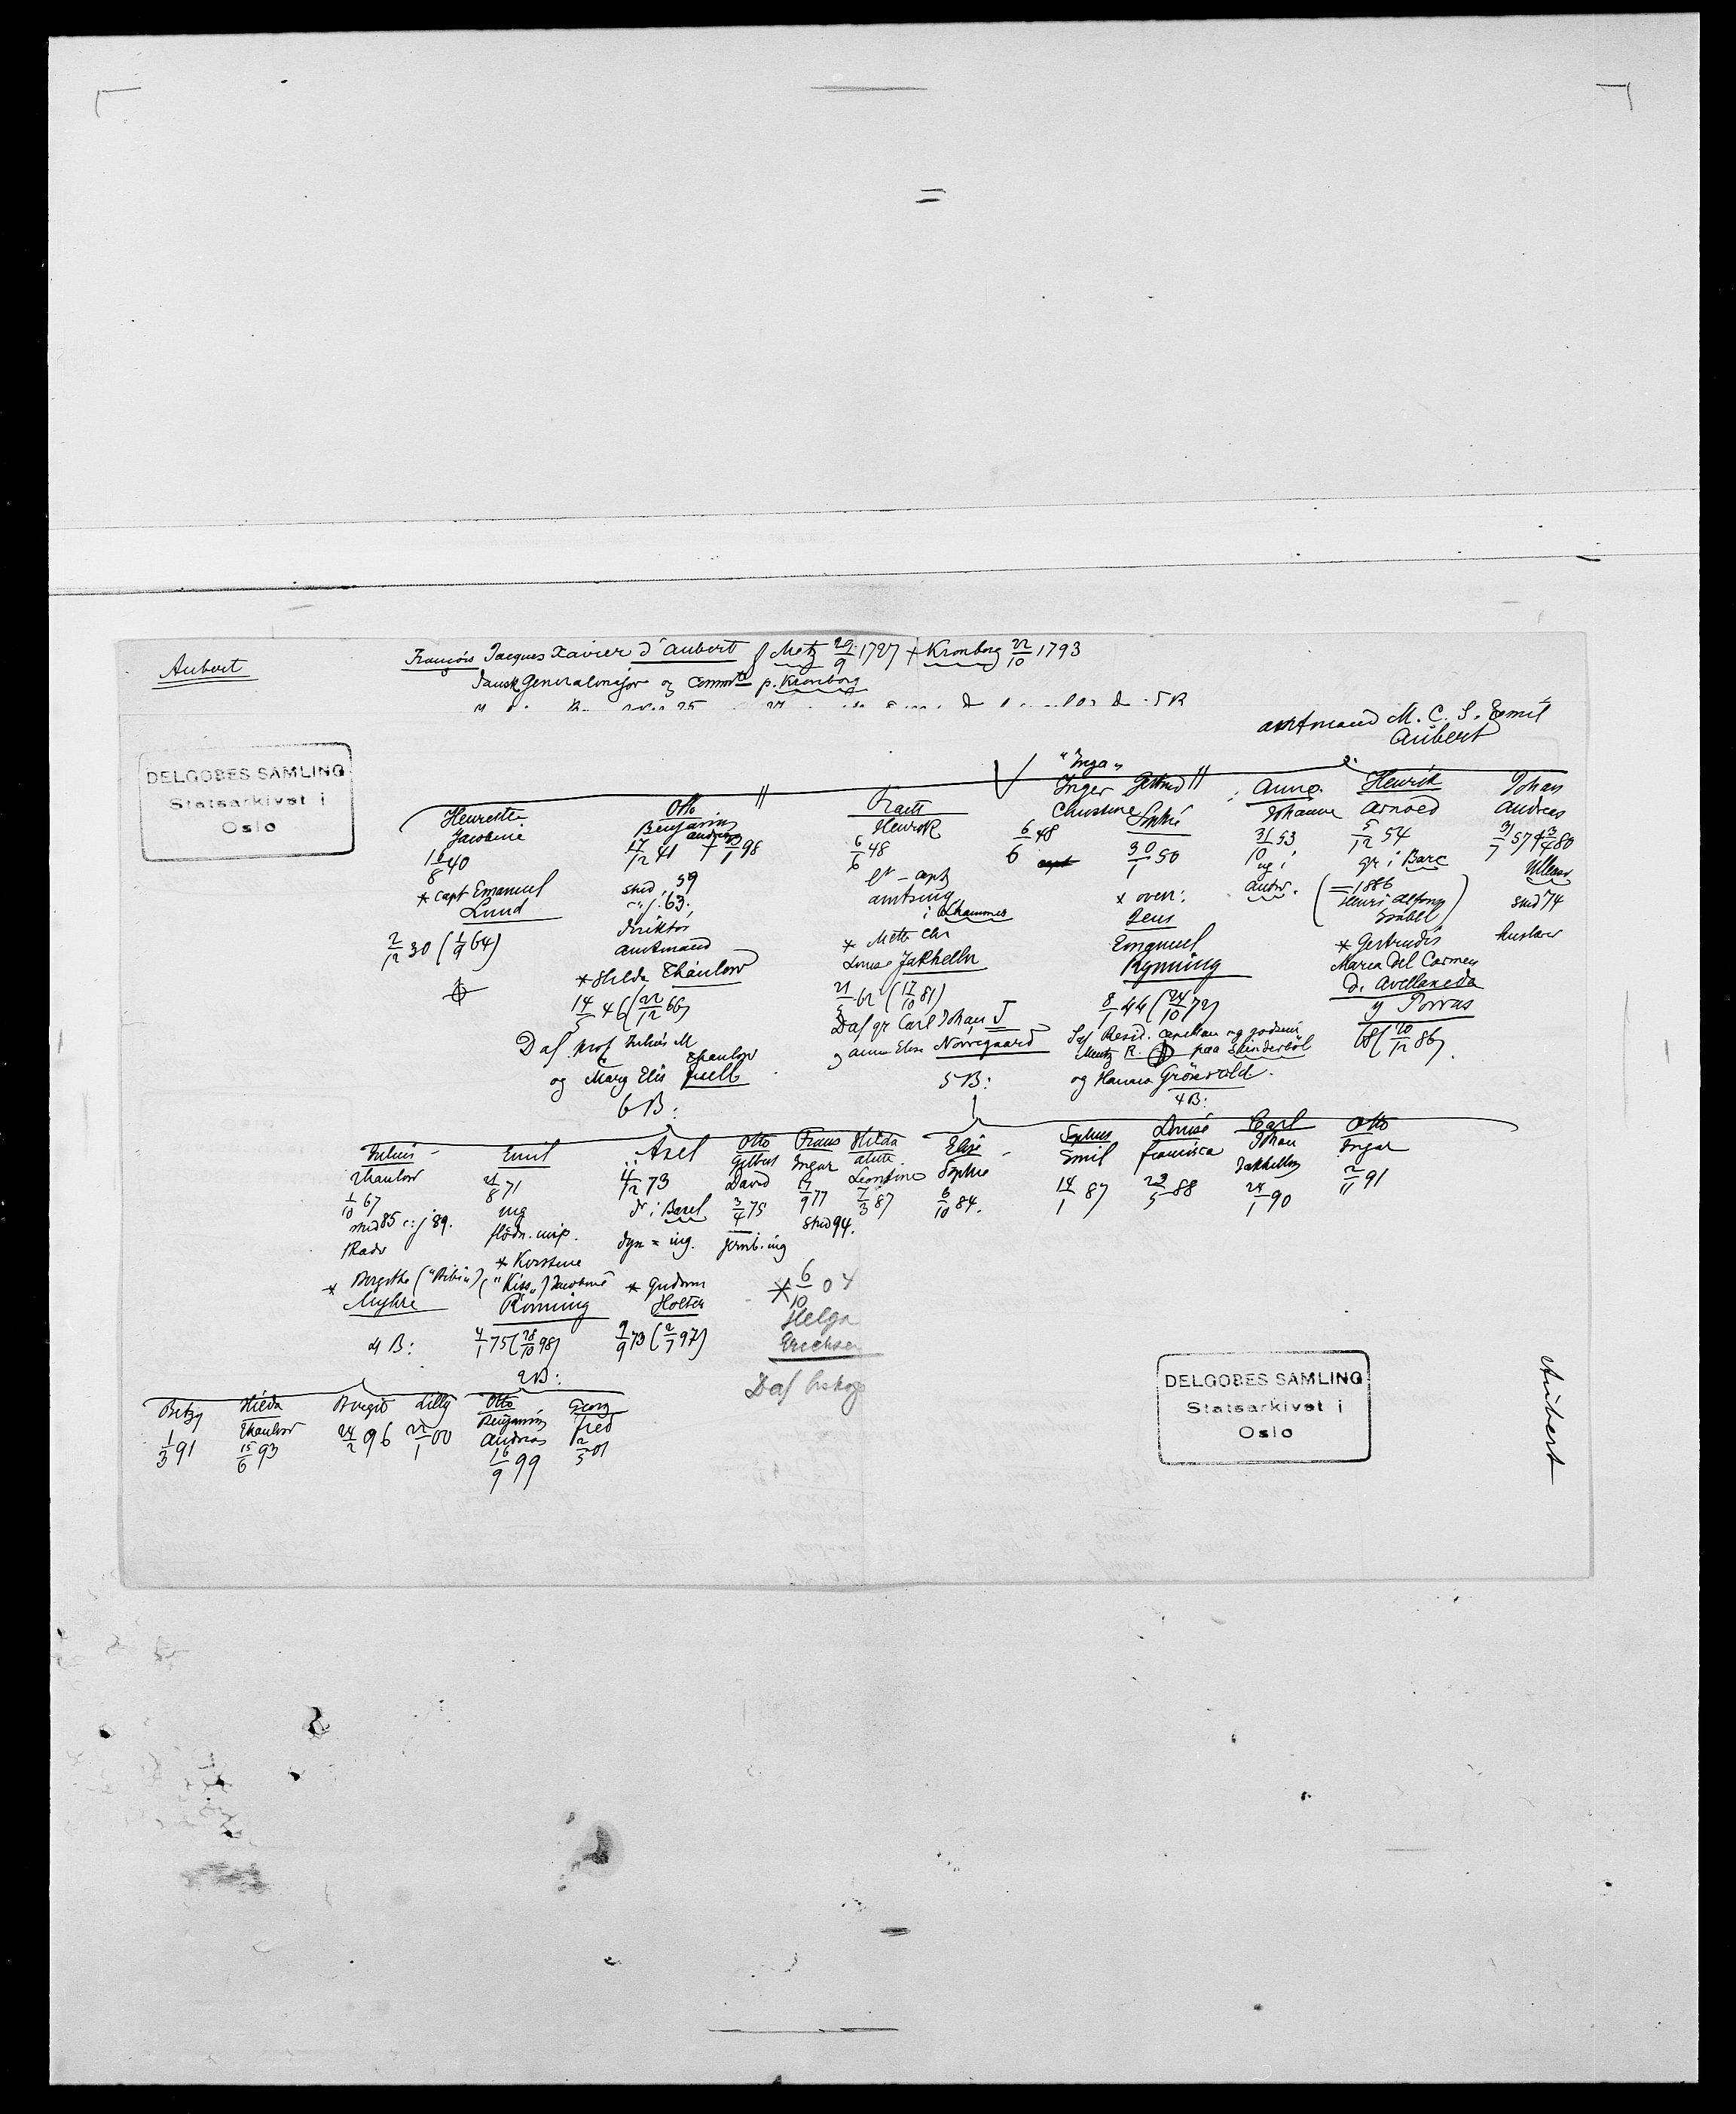 Aubert
François Jacques Xavier d'Aubert f Metz 29/9 1727 † Kronborg 22/10 1793
dansk Generalmajor og p. Kronborg
amtmand M. C. S. Emil
Aubert
DELGOBES SAMLING
Statsarkivet i
Oslo
Henrette
Jacobine
16/8 40
* capt Emanuel
Lund
2/12 30 (1/9 64)
Otto
Benjamin
Andreas
17/12 41 98
stud. 59
63.
direktör
amtmand
* Hilda Thaulow
14/5 46 (22/12 66)
Daf prof Julius M
Thaulow
og Marg Elis Juell
6 B:
Henrik
6/6 48
lt - capt
amtsing
i Lhammer
* Mette Chr
Louise Jakhelln
(17/10 81)
Daf gr Carl Johan J
og Anna Elisa Norregaard
5 B:
"Inga"
Inger
Christine
6/6 48
Sophie
30/1 50
* oven:
Jens
Emanuel
Rynning
8/1 44 (24/10 72)
paa Skinderböl
og Hanna Grönvold.
4 B:
Anna
Johanne
31/10 53
ug i
Henrik
Arnold
5/12 54
gr i Barc
(= 1886
Henri Alfons
Isabel)
* Gertrudis
Maria Del Carmen
D. Avellaneda
y Porras
68 (20/12 86)
Johan
Andreas
31/7 57 † 3/4 80
stud 74
Julius
Thaulow
1/10 67
stud 85 c: j 89.
* Birgitte ("Bibi")
Myhre
4 B:
Emil
21/8 71
ing
* Kirstine
("Kiss") Jacobine
Rönning
4/1 75 (28/10 98)
2 B:
Axel
4/12 73
dr i Basel
dyn = ing.
* Gudrun
Holter
9/9 73 (2/7 97)
Otto
Gilbert
David
3/4 75
jernb. ing
* 6/10 04
Helga
Erichsen
Daf biskop
Frans
Ingar
17/9 77
stud 94.
Hilda
Alette
Leontine
7/3 87
Elise
Sophie
6/10 84.
Sophus
Emil
14/1 87
Louise
Francisca
29/5 88
Carl
Johan
Jakhelln
24/1 90
Otto
Ingar
2/11 91
Betzy
1/3 91
Hilda
Thaulow
15/6 93
Birgit
24/2 96
Lilly
22/1 00
Otto
Benjamin
Andreas
16/9 99
Georg
fred
2/5 01
DELGOBES SAMLING
Statsarkivet i
Oslo
Aubert